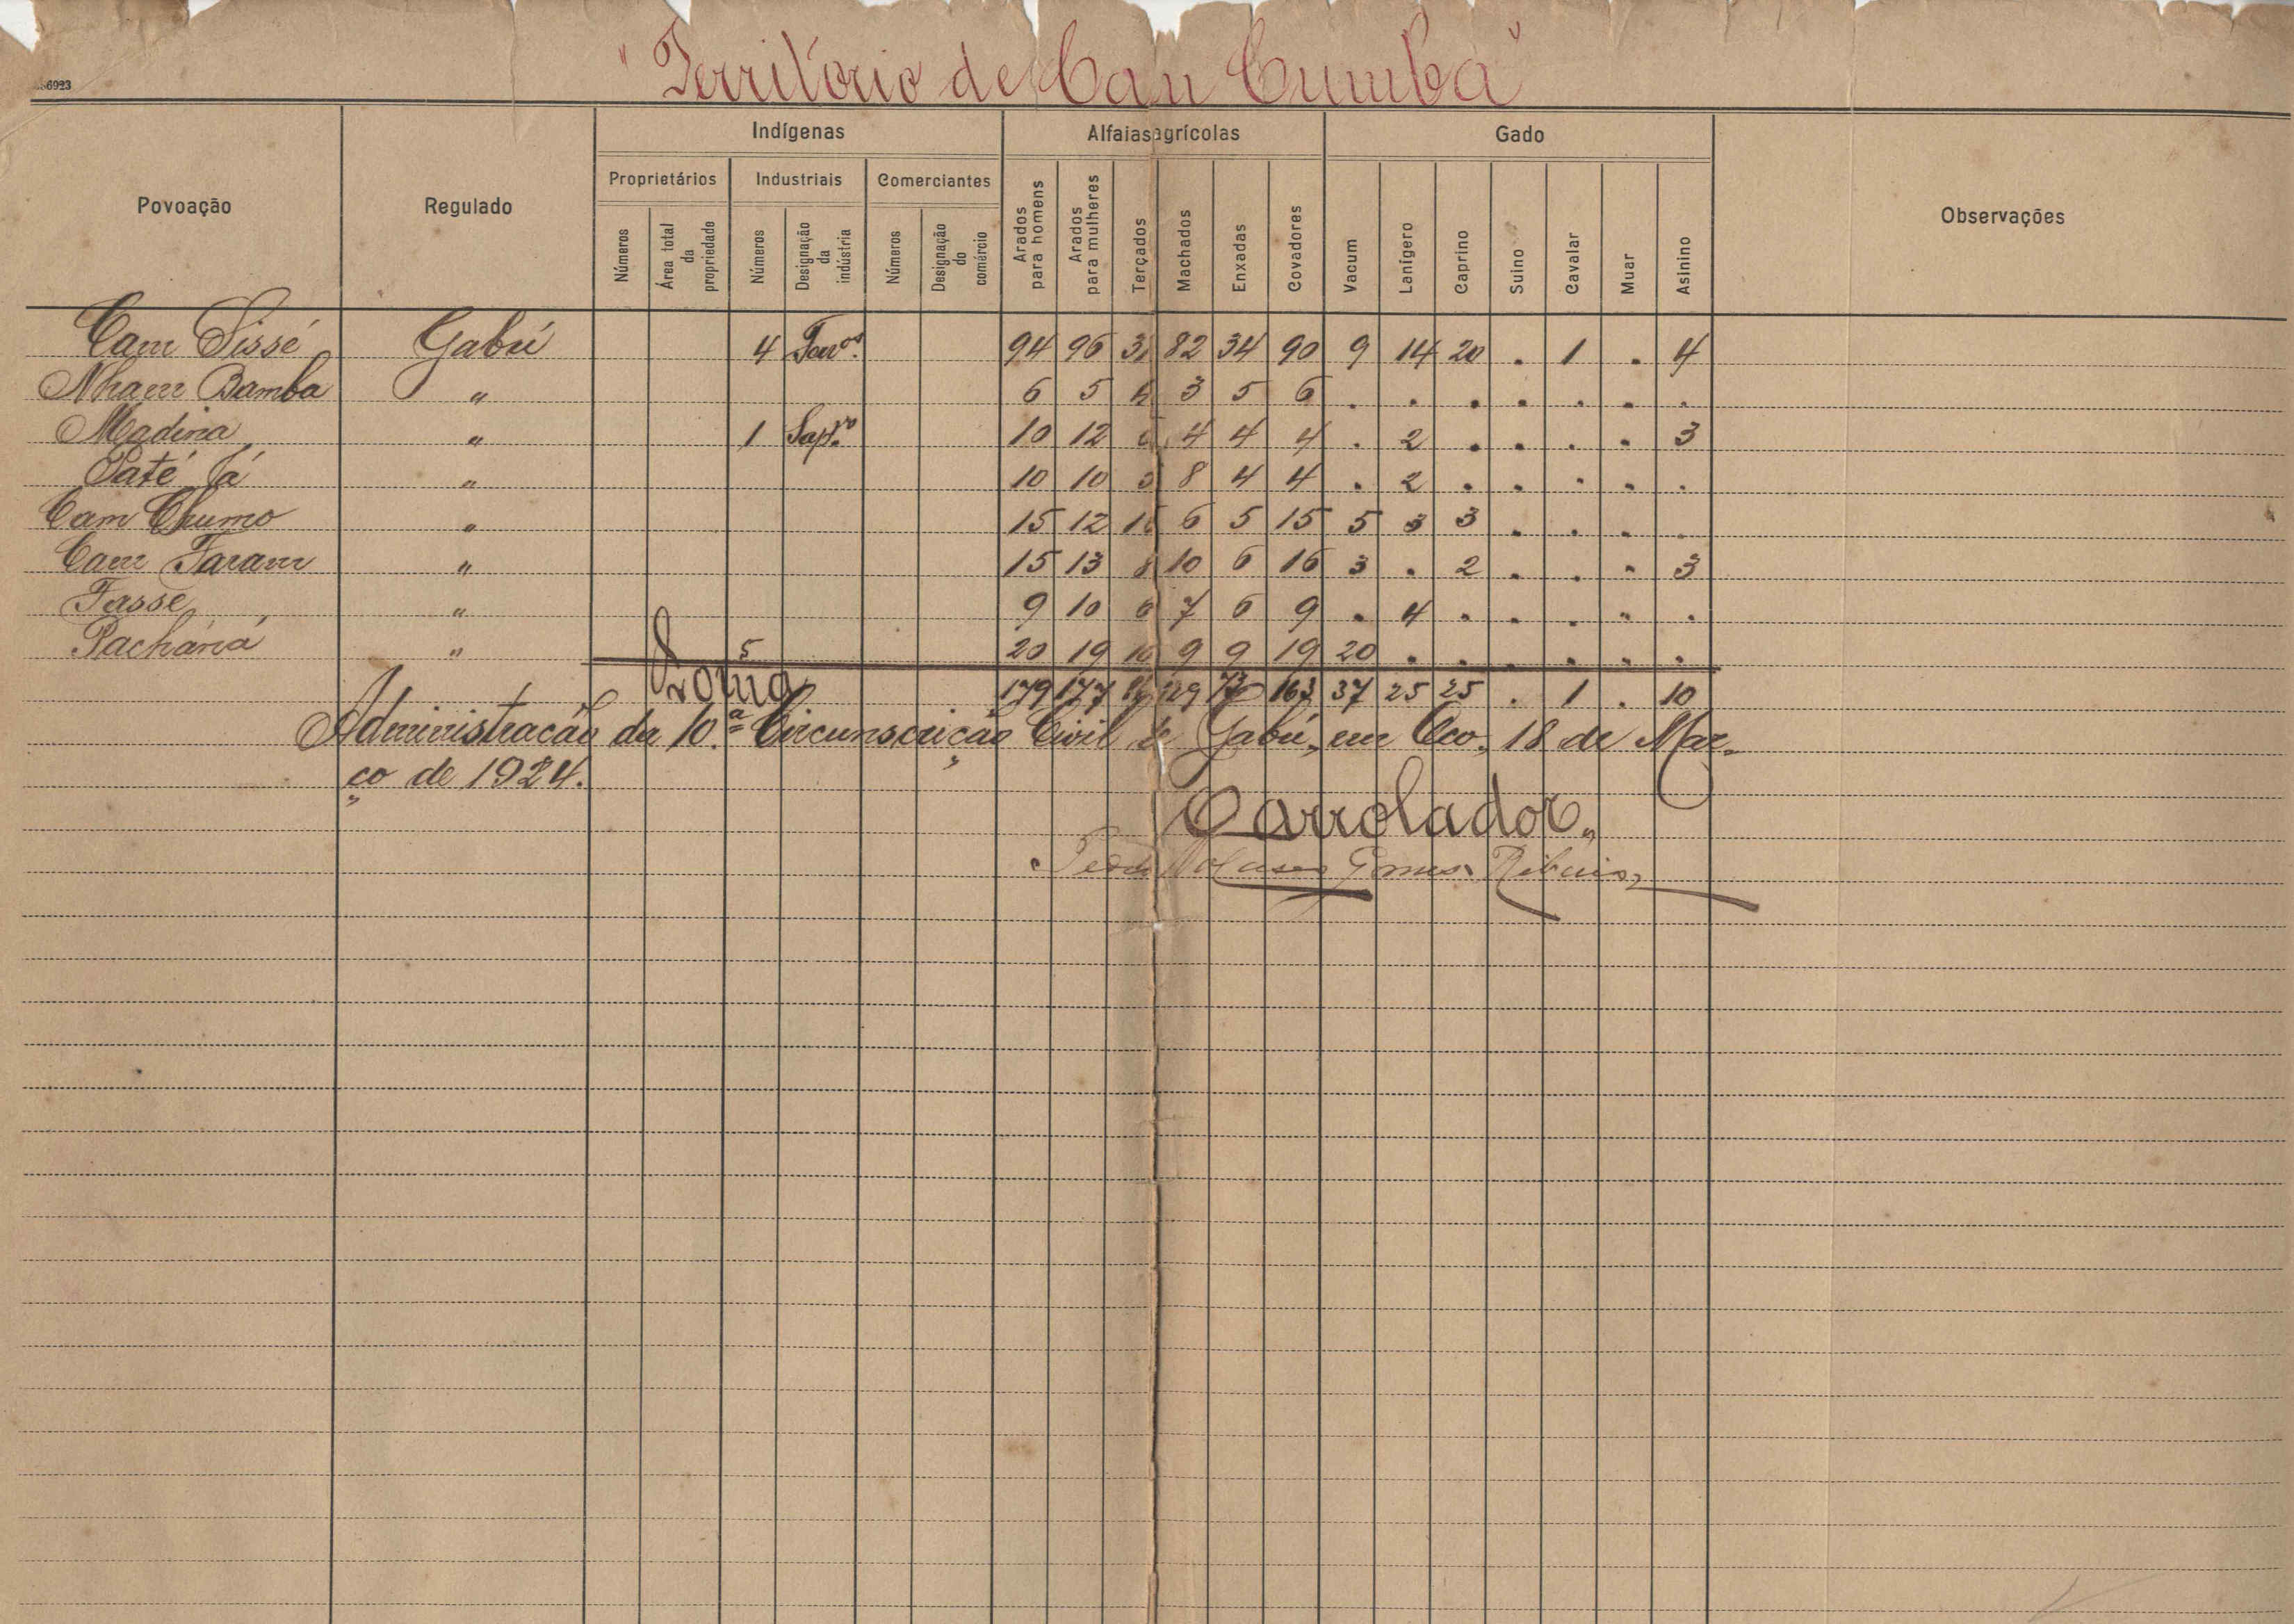 "Território de Can Cumba"
6923
Povoação Regulado Indígenas Alfaias agrícolas Gado Observações
Proprietários Industriais Comerciantes
Números Área total da propriedade Números Designação da indústria Números Designação do comércio Arados para homens Arados para mulheres Terçados Machados Enxadas Covadores Vacum Lanígero Caprino Suino Cavalar Muar Asinino
Cam Sissé Gabú 4 94 96 82 34 90 9 14 20 . 1 . 4
Nham Bamba " 6 5 3 5 6 . . . . . . .
Madina " 1 Sapro 10 12 4 4 4 . 2 . . . . 3
Paté Já " 10 10 8 4 4 . 2 . . . . .
Cam Chumo " 15 12 6 5 15 5 3 3 . . . .
Cam Faram " 15 13 8 10 6 16 3 . 2 . . . 3
Fasse " 9 10 6 7 6 9 . 4 . . . . .
Pacháná " 20 19 10 9 9 19 20 . . . . . .
Soma 5 179 177 129 73 163 37 25 25 . 1 . 10
Administração da 10.ª Circunscrição Civil de Gabú, em Oco, 18 de Mar-
ço de 1924.
O arrolador,
Gomes Ribeiro